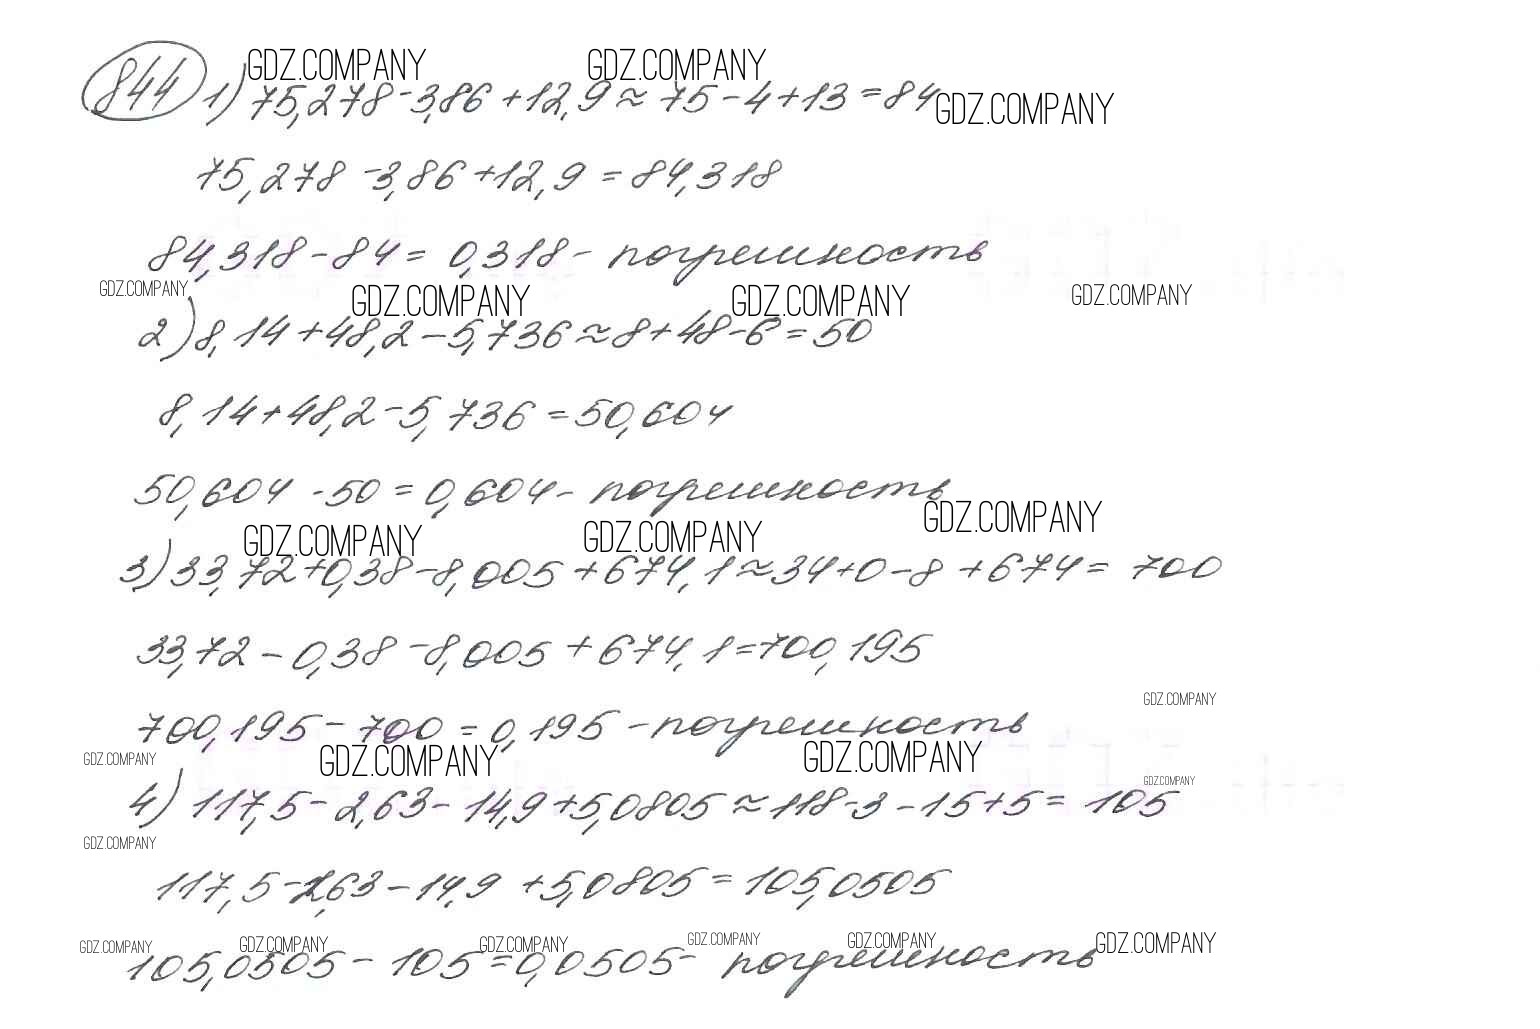 GDZ.COMPANY GDZ.COMPANY
844 1) 75,278-3,86+12,9≈75-4+13=84 GDZ.COMPANY
75,278-3,86+12,9=84,318
84,318-84=0,318- погрешность
GDZ.COMPANY GDZ.COMPANY GDZ.COMPANY GDZ.COMPANY
2) 8,14+48,2-5,736≈8+48-6=50
8,14+48,2-5,736=50,604
50,604-50=0,604- погрешность
GDZ.COMPANY GDZ.COMPANY GDZ.COMPANY
3) 33,72+0,38-8,005+674,1≈34+0-8+674=700
33,72-0,38-8,005+674,1=700,195
GDZ.COMPANY
700,195-700=0,195-погрешность
GDZ.COMPANY GDZ.COMPANY GDZ.COMPANY GDZ.COMPANY
4) 117,5-2,63-14,9+5,0805≈118-3-15+5=105
GDZ.COMPANY
117,5-2,63-14,9+5,0805=105,0505
GDZ.COMPANY GDZ.COMPANY GDZ.COMPANY GDZ.COMPANY GDZ.COMPANY GDZ.COMPANY
105,0505-105=0,0505- погрешность